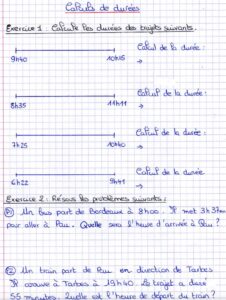 Calculs de durées
Exercice 1 : Calcule les durées des trajets suivants.
Calcul de la durée :
9h40 10h15 →
Calcul de la durée :
8h35 11h11 →
Calcul de la durée :
7h25 10h40 →
Calcul de la durée
6h22 9h41 →
Exercice 2 : Résous les problèmes suivants :
P1 Un bus part de Bordeaux à 8h00. Il met 3h37mn
pour aller à Pau. Quelle sera l'heure d'arrivée à Pau ?
P2 Un train part de Pau en direction de Tarbes
Il arrive à Tarbes à 19h40. Le trajet a duré
55 minutes. Quelle est l'heure de départ du train ?